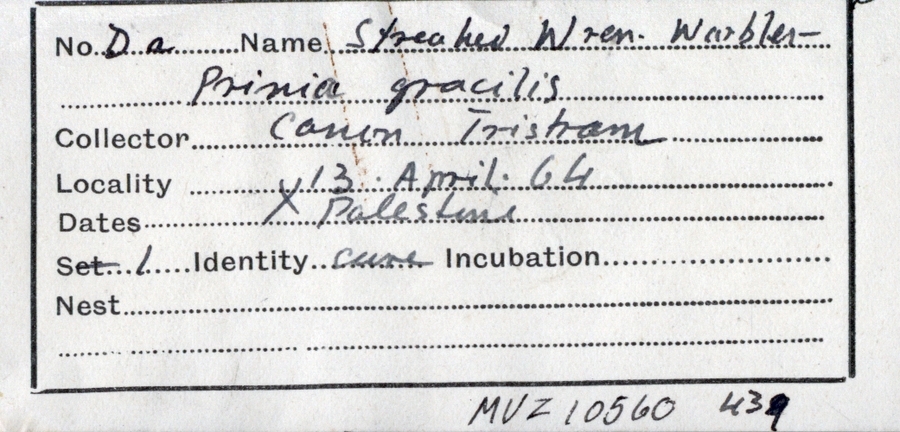 No. D a Name Streaked Wren. Warbler-
Prinia gracilis
Collector Canon Tristram
Locality 13. April. 64
Dates X Palestine
Set 1 Identity sure Incubation
Nest
MVZ 10560 439